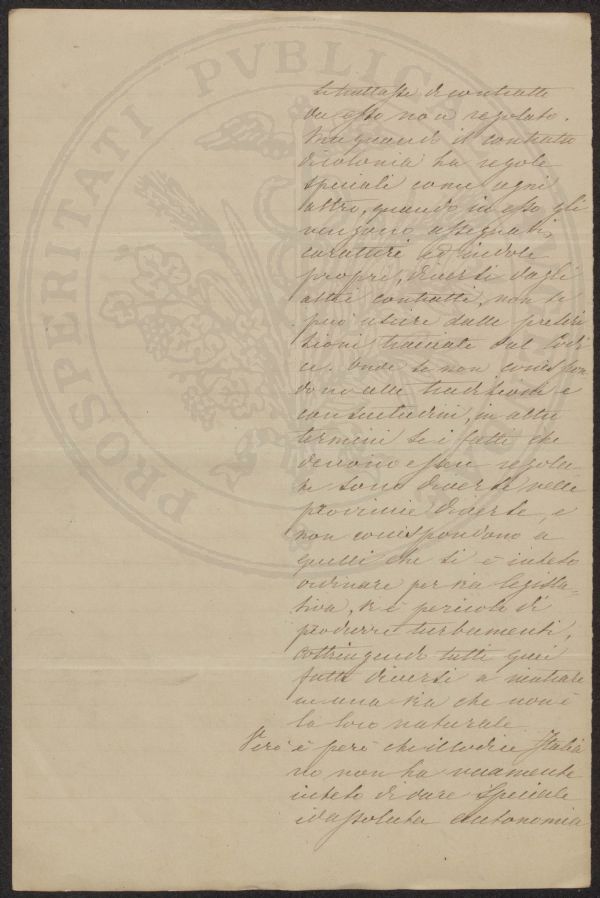 PROSPERITATI PVBLICAE
si trattasse di contratti
da esso non regolato.
Ma quando il contratto
di colonia ha regole
speciali come ogni
altro, quando in esso gli
vengono assegnati,
caratteri ed indole
propri, diversi dagli
altri contratti, non si
può uscire dalle prescri
zioni tracciate dal Codi
ce. Onde se non corrispon
dono alle tradizioni e
consuetudini, in altri
termini se i fatti che
devono essere regola
ti sono diversi nelle
provincie diverse, e
non corrispondono a
quelli che si è inteso
ordinare per via legisla=
tiva, vi è pericolo di
produrre turbamenti,
costringendo tutti quei
fatti diversi a rientrare
in una via che non è
la loro naturale
Vero è però che il Codice Italia
no non ha veramente
inteso di dare speciale
ed assoluta autonomia